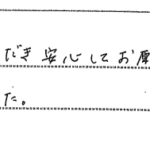 だき安心してお願
た。